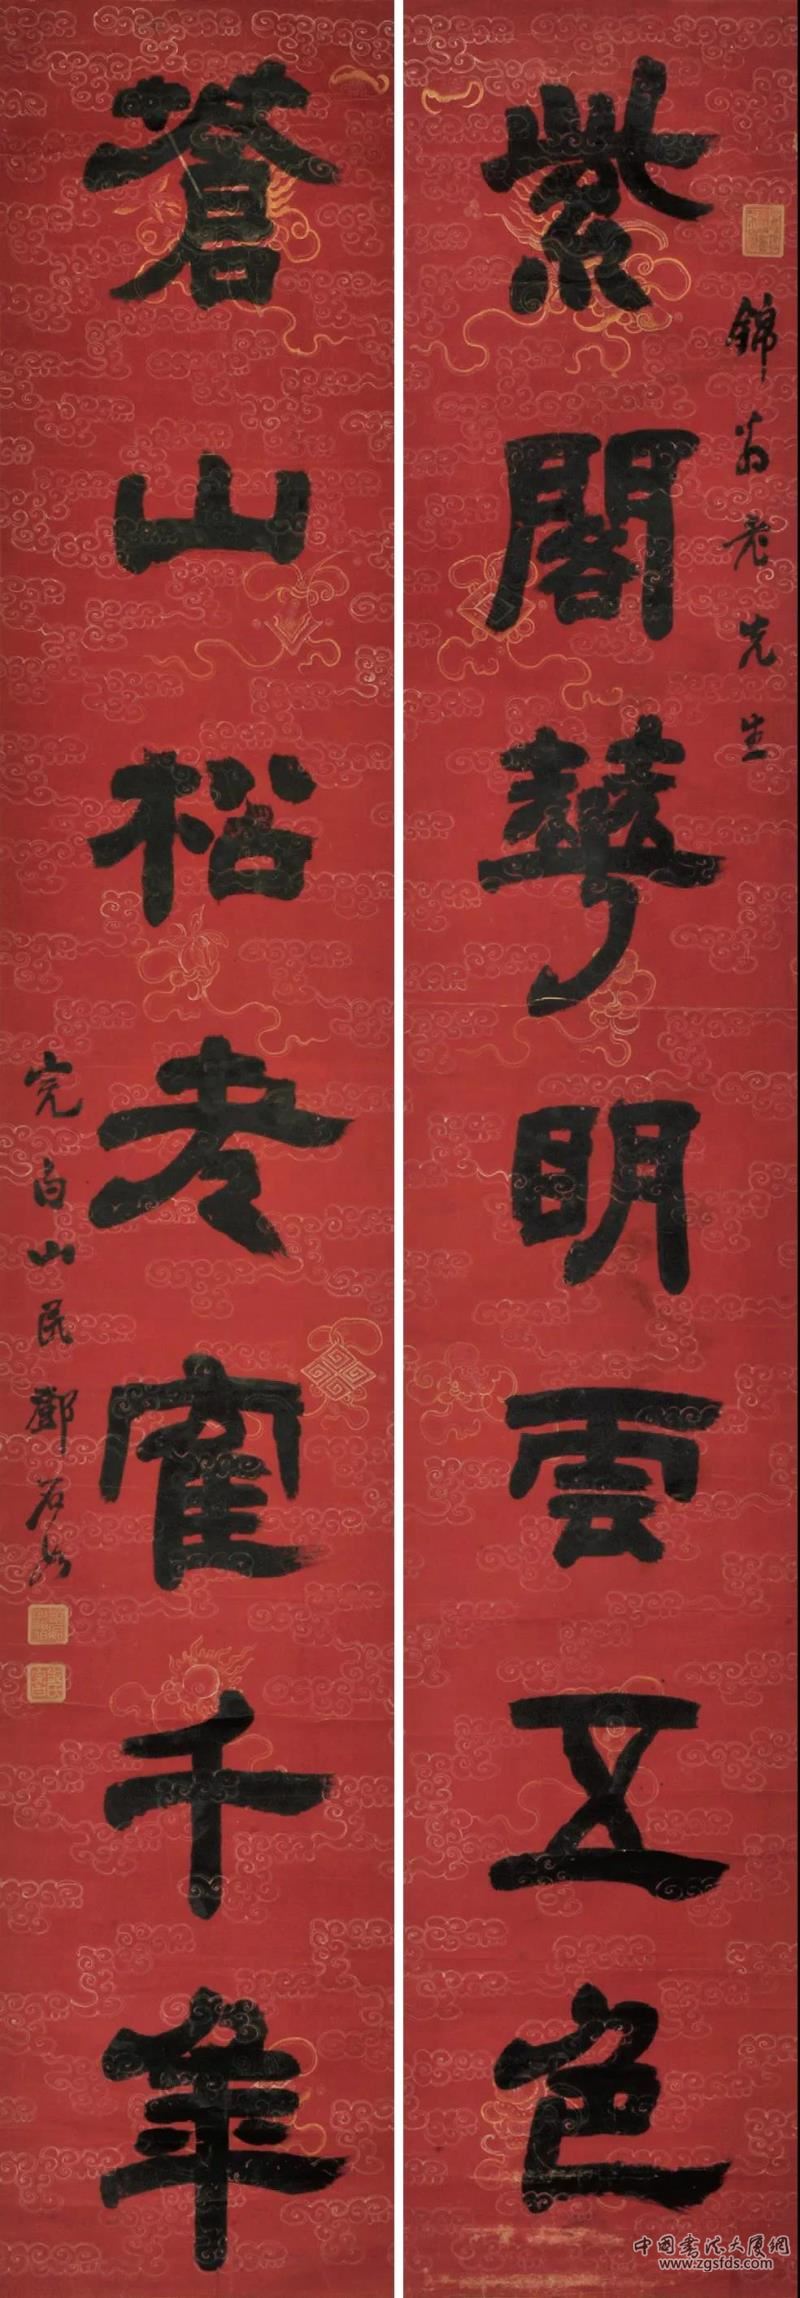 錦翁老先生
紫閣華明雲五色
蒼山松老隺千年
完白山民鄧石如
中国書法大厦網
www.zgsfds.com